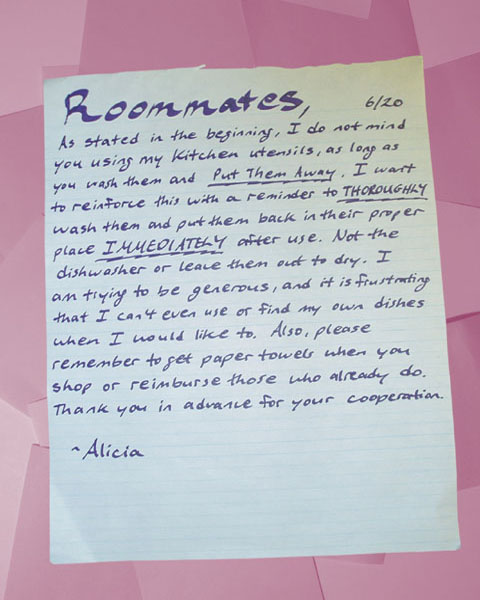 Roommates, 6/20
As stated in the beginning, I do not mind
you using my kitchen utensils, as long as
you wash them and Put Them Away. I want
to reinforce this with a reminder to THOROUGHLY
wash them and put them back in their proper
place IMMEDIATELY after use. Not the
dishwasher or leave them out to dry. I
am trying to be generous, and it is frustrating
that I can't even use or find my own dishes
when I would like to. Also, please
remember to get paper towels when you
shop or reimburse those who already do.
Thank you in advance for your cooperation.
~Alicia